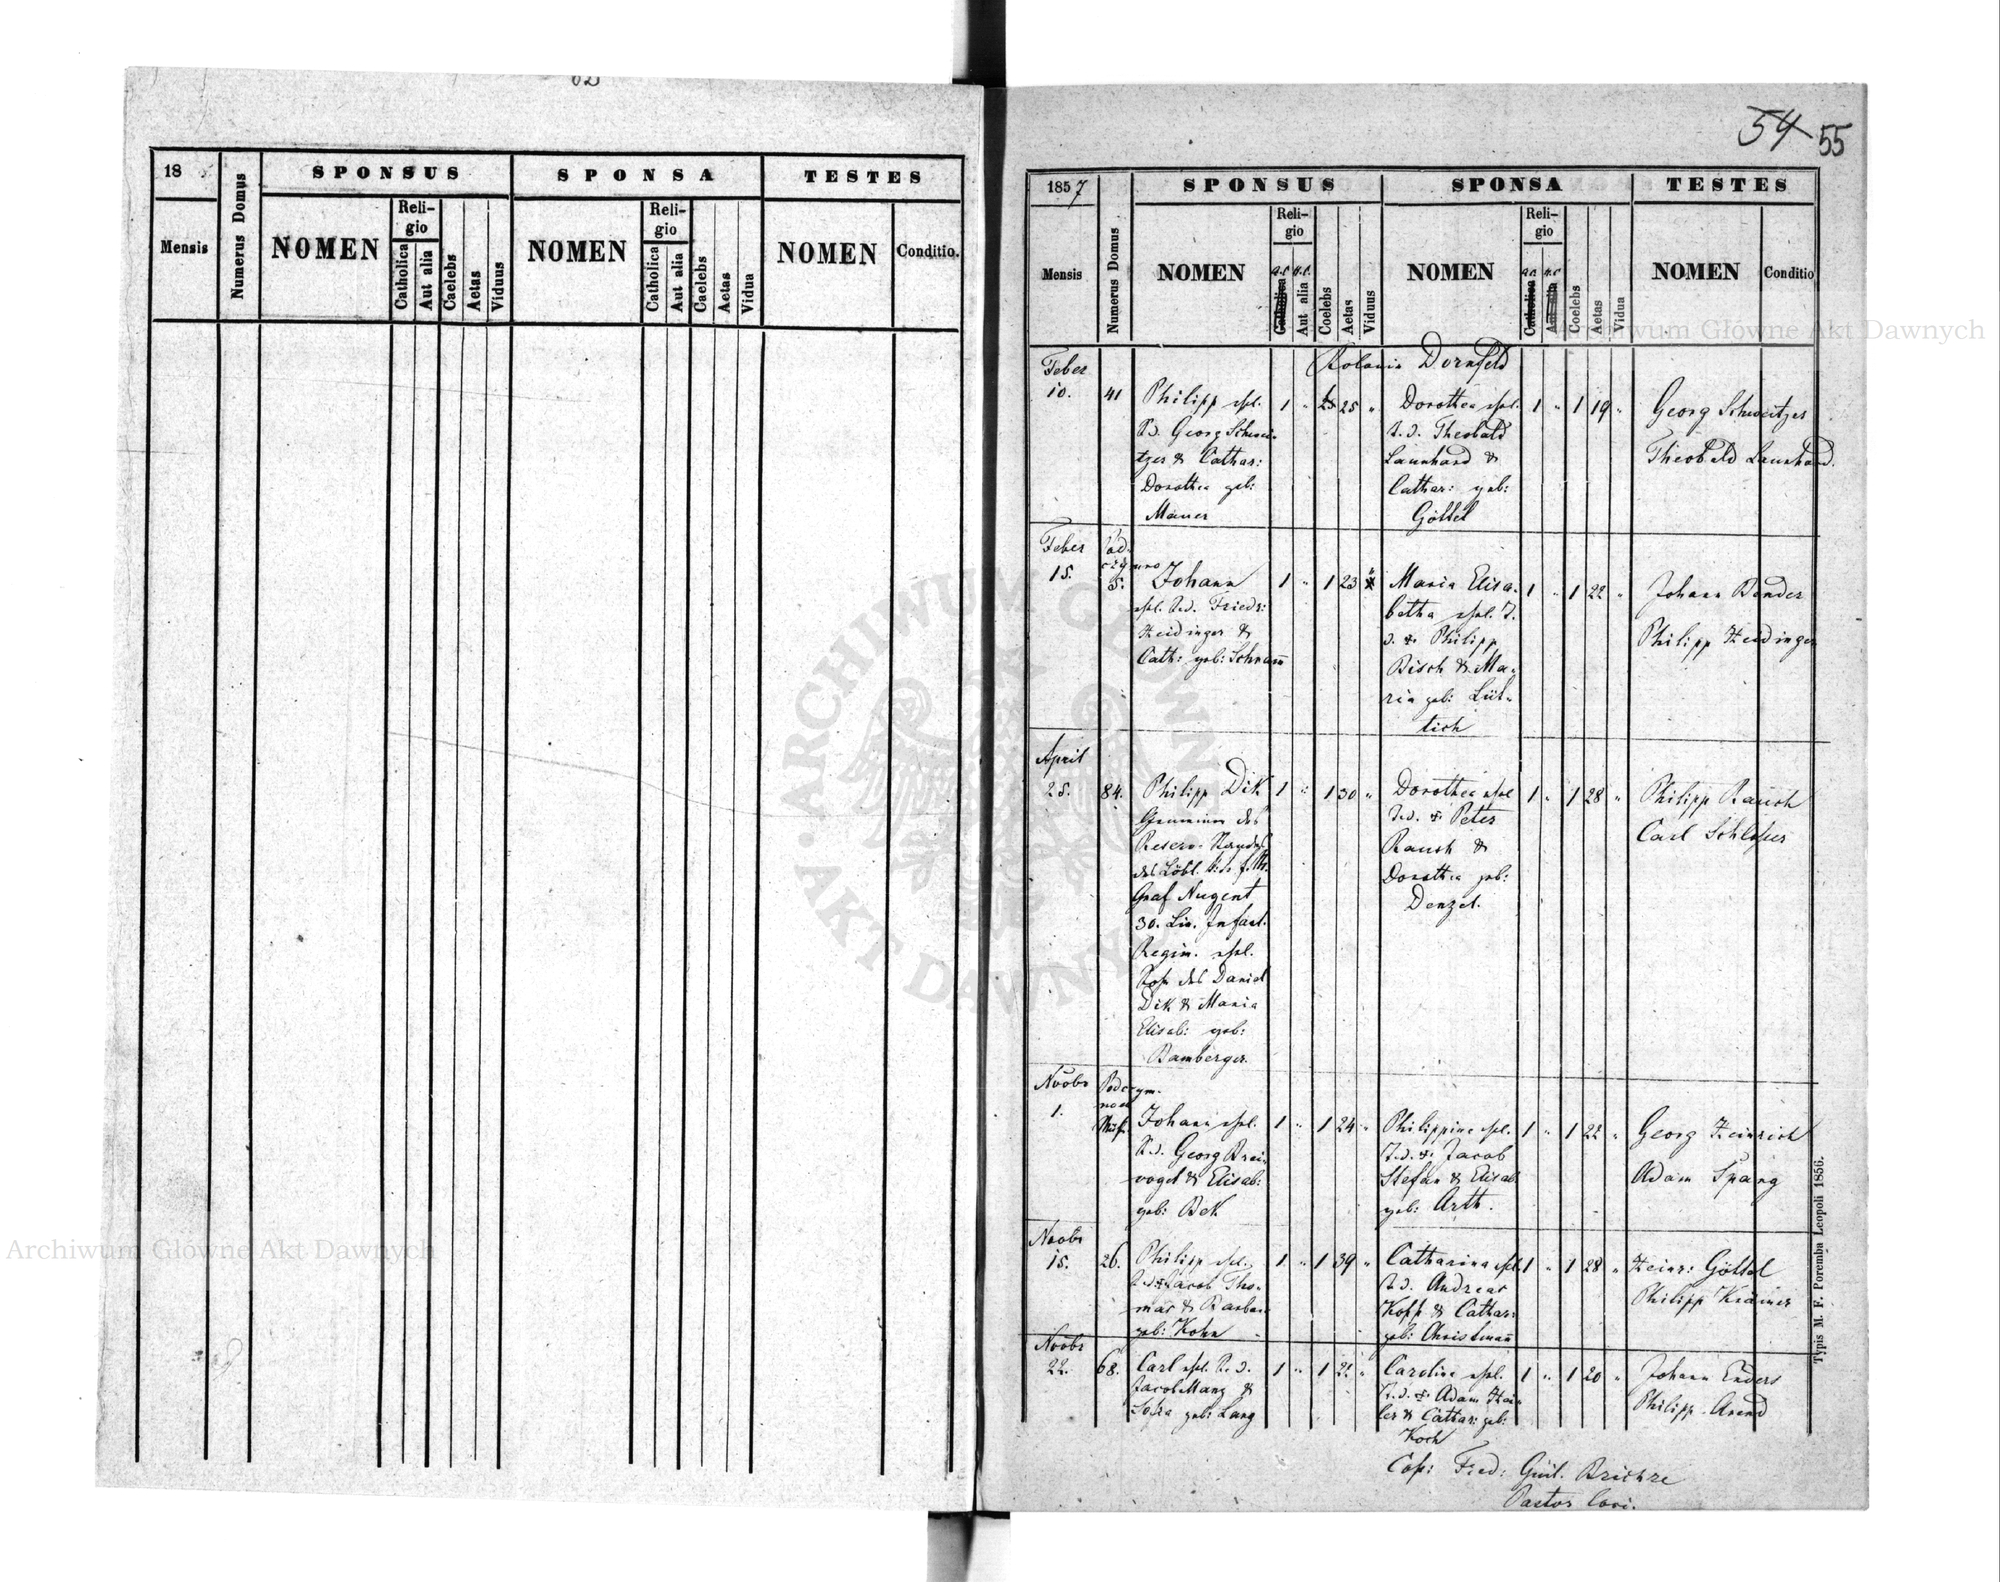 54 55
18
Mensis
Numerus Domus
SPONSUS
NOMEN
Reli-
gio
Catholica
Aut alia
Caelebs
Aetas
Viduus
SPONSA
NOMEN
Reli-
gio
Catholica
Aut alia
Caelebs
Aetas
Vidua
TESTES
NOMEN
Conditio.
1857
Mensis
Numerus Domus
SPONSUS
NOMEN
Reli-
gio
A.C. H.C.
Catholica
Aut alia
Coelebs
Aetas
Viduus
SPONSA
NOMEN
Reli-
gio
A.C. H.C.
Catholica
Aut alia
Coelebs
Aetas
Vidua
TESTES
NOMEN
Conditio
Dornfeld
Feber
10.
41
Philipp ehl.
S.d. Georg Schwei-
tzer & Cathar:
Dorothea geb:
Mauer
1 " 25 "
Dorothea ehl.
T.d. Theobald
Launhard &
Cathar: geb:
Göttel
1 " 1 19 "
Georg Schweitzer
Theobald Launhard.
Feber
15.
5.
Johann
ehl. S.d. Friedr:
Heidinger &
Cath: geb: Schram̄
1 " 1 23 "
Maria Elisa-
betha ehl. T.
d. + Philipp
Bisch & Ma-
ria geb: Lüt-
tich
1 " 1 22 "
Johann Bender
Philipp Heidinger
April
25.
84.
Philipp Dik
Gemeiner des
Reserv-
des Löbl.
Graf Nugent
30. Lin. Infant.
Regim. ehl.
Sohn des Daniel
Dik & Maria
Elisab: geb:
Bamberger.
1 " 1 30 "
Dorothea ehl
T.d. + Peter
Rauch &
Dorothea geb:
Denzel.
1 " 1 28 "
Philipp Rauch
Carl Schlosser
Novbr
1.
Johann ehl.
S.d. Georg Brei-
vogel & Elisab:
geb: Bek
1 " 1 24 "
Philippine ehl.
T.d. + Jacob
Stefan & Elisab
geb: Arth.
1 " 1 22 "
Georg Heinrich
Adam Spang
Novbr
15.
26.
Philipp ehl.
S.d. + Jacob Tho-
mas & Barbara
geb: Kohn
1 " 1 39 "
Catharina ehl.
T.d. Andreas
Kopp & Cathar:
geb: Christman̄
1 " 1 28 "
Heinr: Göttel
Philipp Krämer
Novbr
22.
68.
Carl ehl. S.d.
Jacob Manz &
Sofia geb: Lang
1 " 1 22 "
Carolina ehl.
T.d. + Adam Hei-
ler & Cathar: geb:
Koch
1 " 1 20 "
Johann Enders
Philipp Arend
Cop: Fried: Guil.
Pastor loci.
Typis M. F. Poremba Leopoli 1856.
Archiwum Główne Akt Dawnych
Archiwum Główne Akt Dawnych
ARCHIWUM GŁÓWNE
AKT DAWNYCH